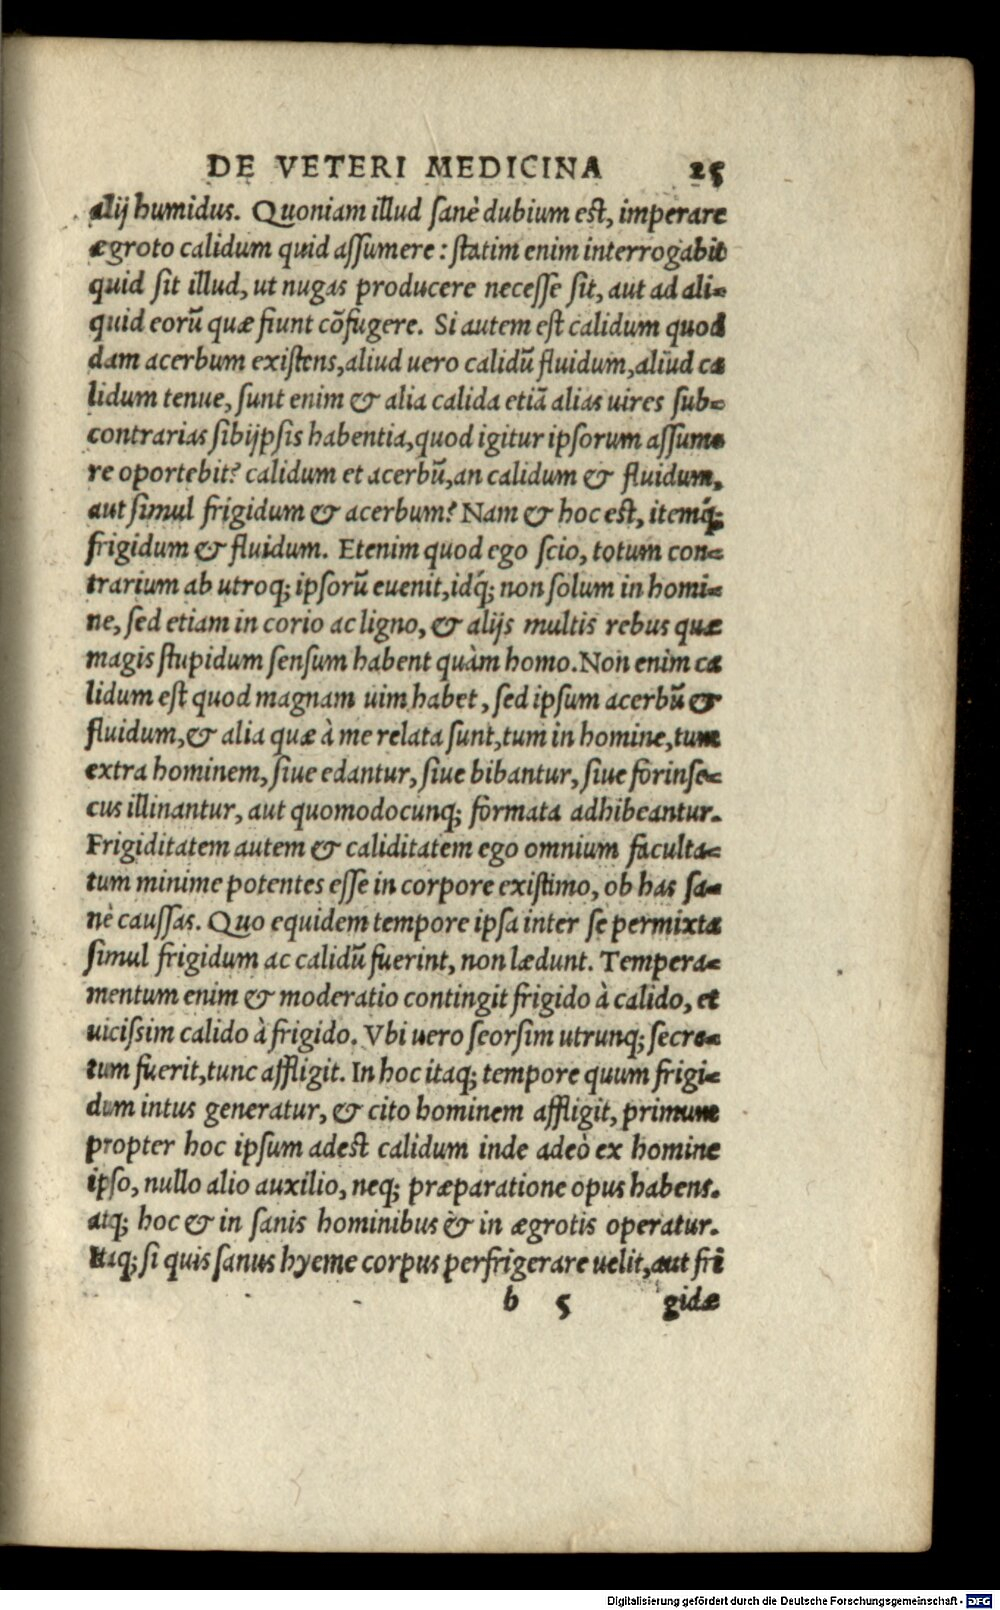 DE VETERI MEDICINA 25
alij humidus. Quoniam illud sanè dubium est, imperare
ægroto calidum quid assumere: statim enim interrogabit
quid sit illud, ut nugas producere necesse sit, aut ad ali-
quid eorũ quæ fiunt cõfugere. Si autem est calidum quod
dam acerbum existens, aliud uero calidũ fluidum, aliud ca
lidum tenue, sunt enim & alia calida etiã alias uires sub-
contrarias sibijpsis habentia, quod igitur ipsorum assume
re oportebit? calidum et acerbũ, an calidum & fluidum,
aut simul frigidum & acerbum? Nam & hoc est, itemq́;
frigidum & fluidum. Etenim quod ego scio, totum con-
trarium ab utroq; ipsorũ euenit, idq́; non solum in homi-
ne, sed etiam in corio ac ligno, & alijs multis rebus quæ
magis stupidum sensum habent quàm homo. Non enim ca
lidum est quod magnam uim habet, sed ipsum acerbũ &
fluidum, & alia quæ à me relata sunt, tum in homine, tum
extra hominem, siue edantur, siue bibantur, siue forinse-
cus illinantur, aut quomodocunq; formata adhibeantur.
Frigiditatem autem & caliditatem ego omnium faculta-
tum minime potentes esse in corpore existimo, ob has sa-
nè caussas. Quo equidem tempore ipsa inter se permixta
simul frigidum ac calidũ fuerint, non lædunt. Tempera-
mentum enim & moderatio contingit frigido à calido, et
uicissim calido à frigido. Vbi uero seorsim utrunq; secre-
tum fuerit, tunc affligit. In hoc itaq; tempore quum frigi-
dum intus generatur, & cito hominem affligit, primum
propter hoc ipsum adest calidum inde adeò ex homine
ipso, nullo alio auxilio, neq; præparatione opus habens.
atq; hoc & in sanis hominibus & in ægrotis operatur.
Itaq; si quis sanus hyeme corpus perfrigerare uelit, aut fri
b 5 gidæ
Digitalisierung gefördert durch die Deutsche Forschungsgemeinschaft - DFG